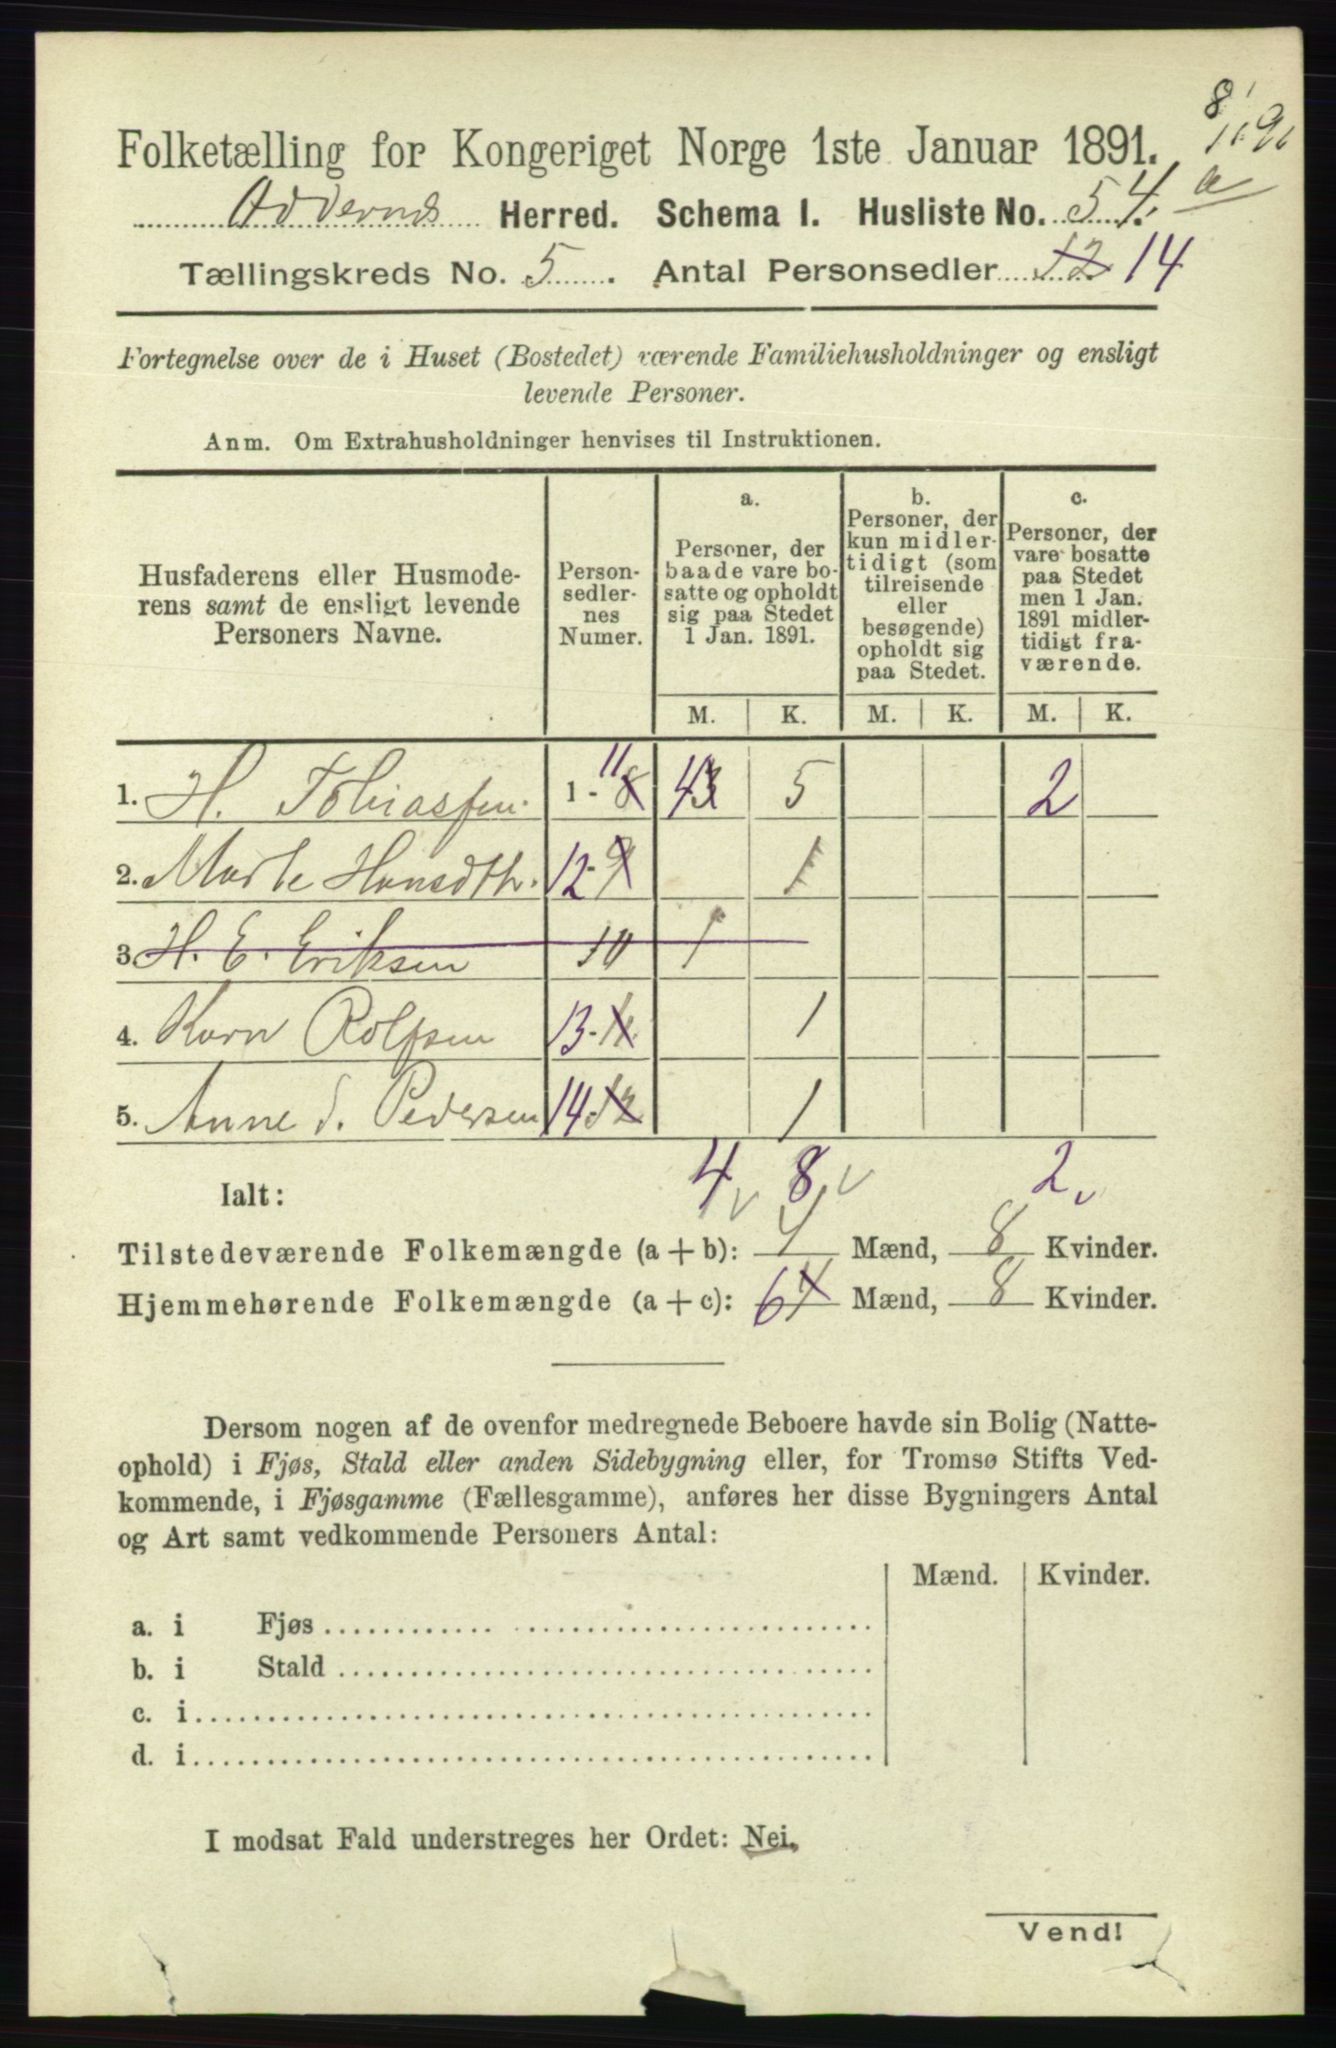 8
11 91
Folketælling for Kongeriget Norge 1ste Januar 1891.
Oddernes Herred. Schema I. Husliste No. 54. a
Tællingskreds No. 5. Antal Personsedler 12 14
Fortegnelse over de i Huset (Bostedet) værende Familiehusholdninger og ensligt
levende Personer.
Anm. Om Extrahusholdninger henvises til Instruktionen.
Husfaderens eller Husmode-
rens samt de ensligt levende
Personers Navne.
Person-
sedler-
nes
Numer.
a.
Personer, der
baade vare bo-
satte og opholdt
sig paa Stedet
1 Jan. 1891.
b.
Personer, der
kun midler-
tidigt (som
tilreisende
eller
besøgende)
opholdt sig
paa Stedet.
c.
Personer, der
vare bosatte
paa Stedet
men 1 Jan.
1891 midler-
tidigt fra-
værende.
M. K. M. K. M. K.
1. H. Tobiassen. 1-11 8 4 3 5 2
2. Marte Hansdtr. 12-9 1
3 H. E. Eriksen 10 1
4. Karn Rolfsen 13- 11 1
5. Anne d. Pedersen 14 12 1
Ialt: 4 8 2
Tilstedeværende Folkemængde (a + b): 4 Mænd, 8 Kvinder.
Hjemmehørende Folkemængde (a + c): 6 4 Mænd, 8 Kvinder.
Dersom nogen af de ovenfor medregnede Beboere havde sin Bolig (Natte-
ophold) i Fjøs, Stald eller anden Sidebygning eller, for Tromsø Stifts Ved-
kommende, i Fjøsgamme (Fællesgamme), anføres her disse Bygningers Antal
og Art samt vedkommende Personers Antal:
Mænd. Kvinder.
a. i Fjøs
b. i Stald
c. i
d. i
I modsat Fald understreges her Ordet: Nei.
Vend!